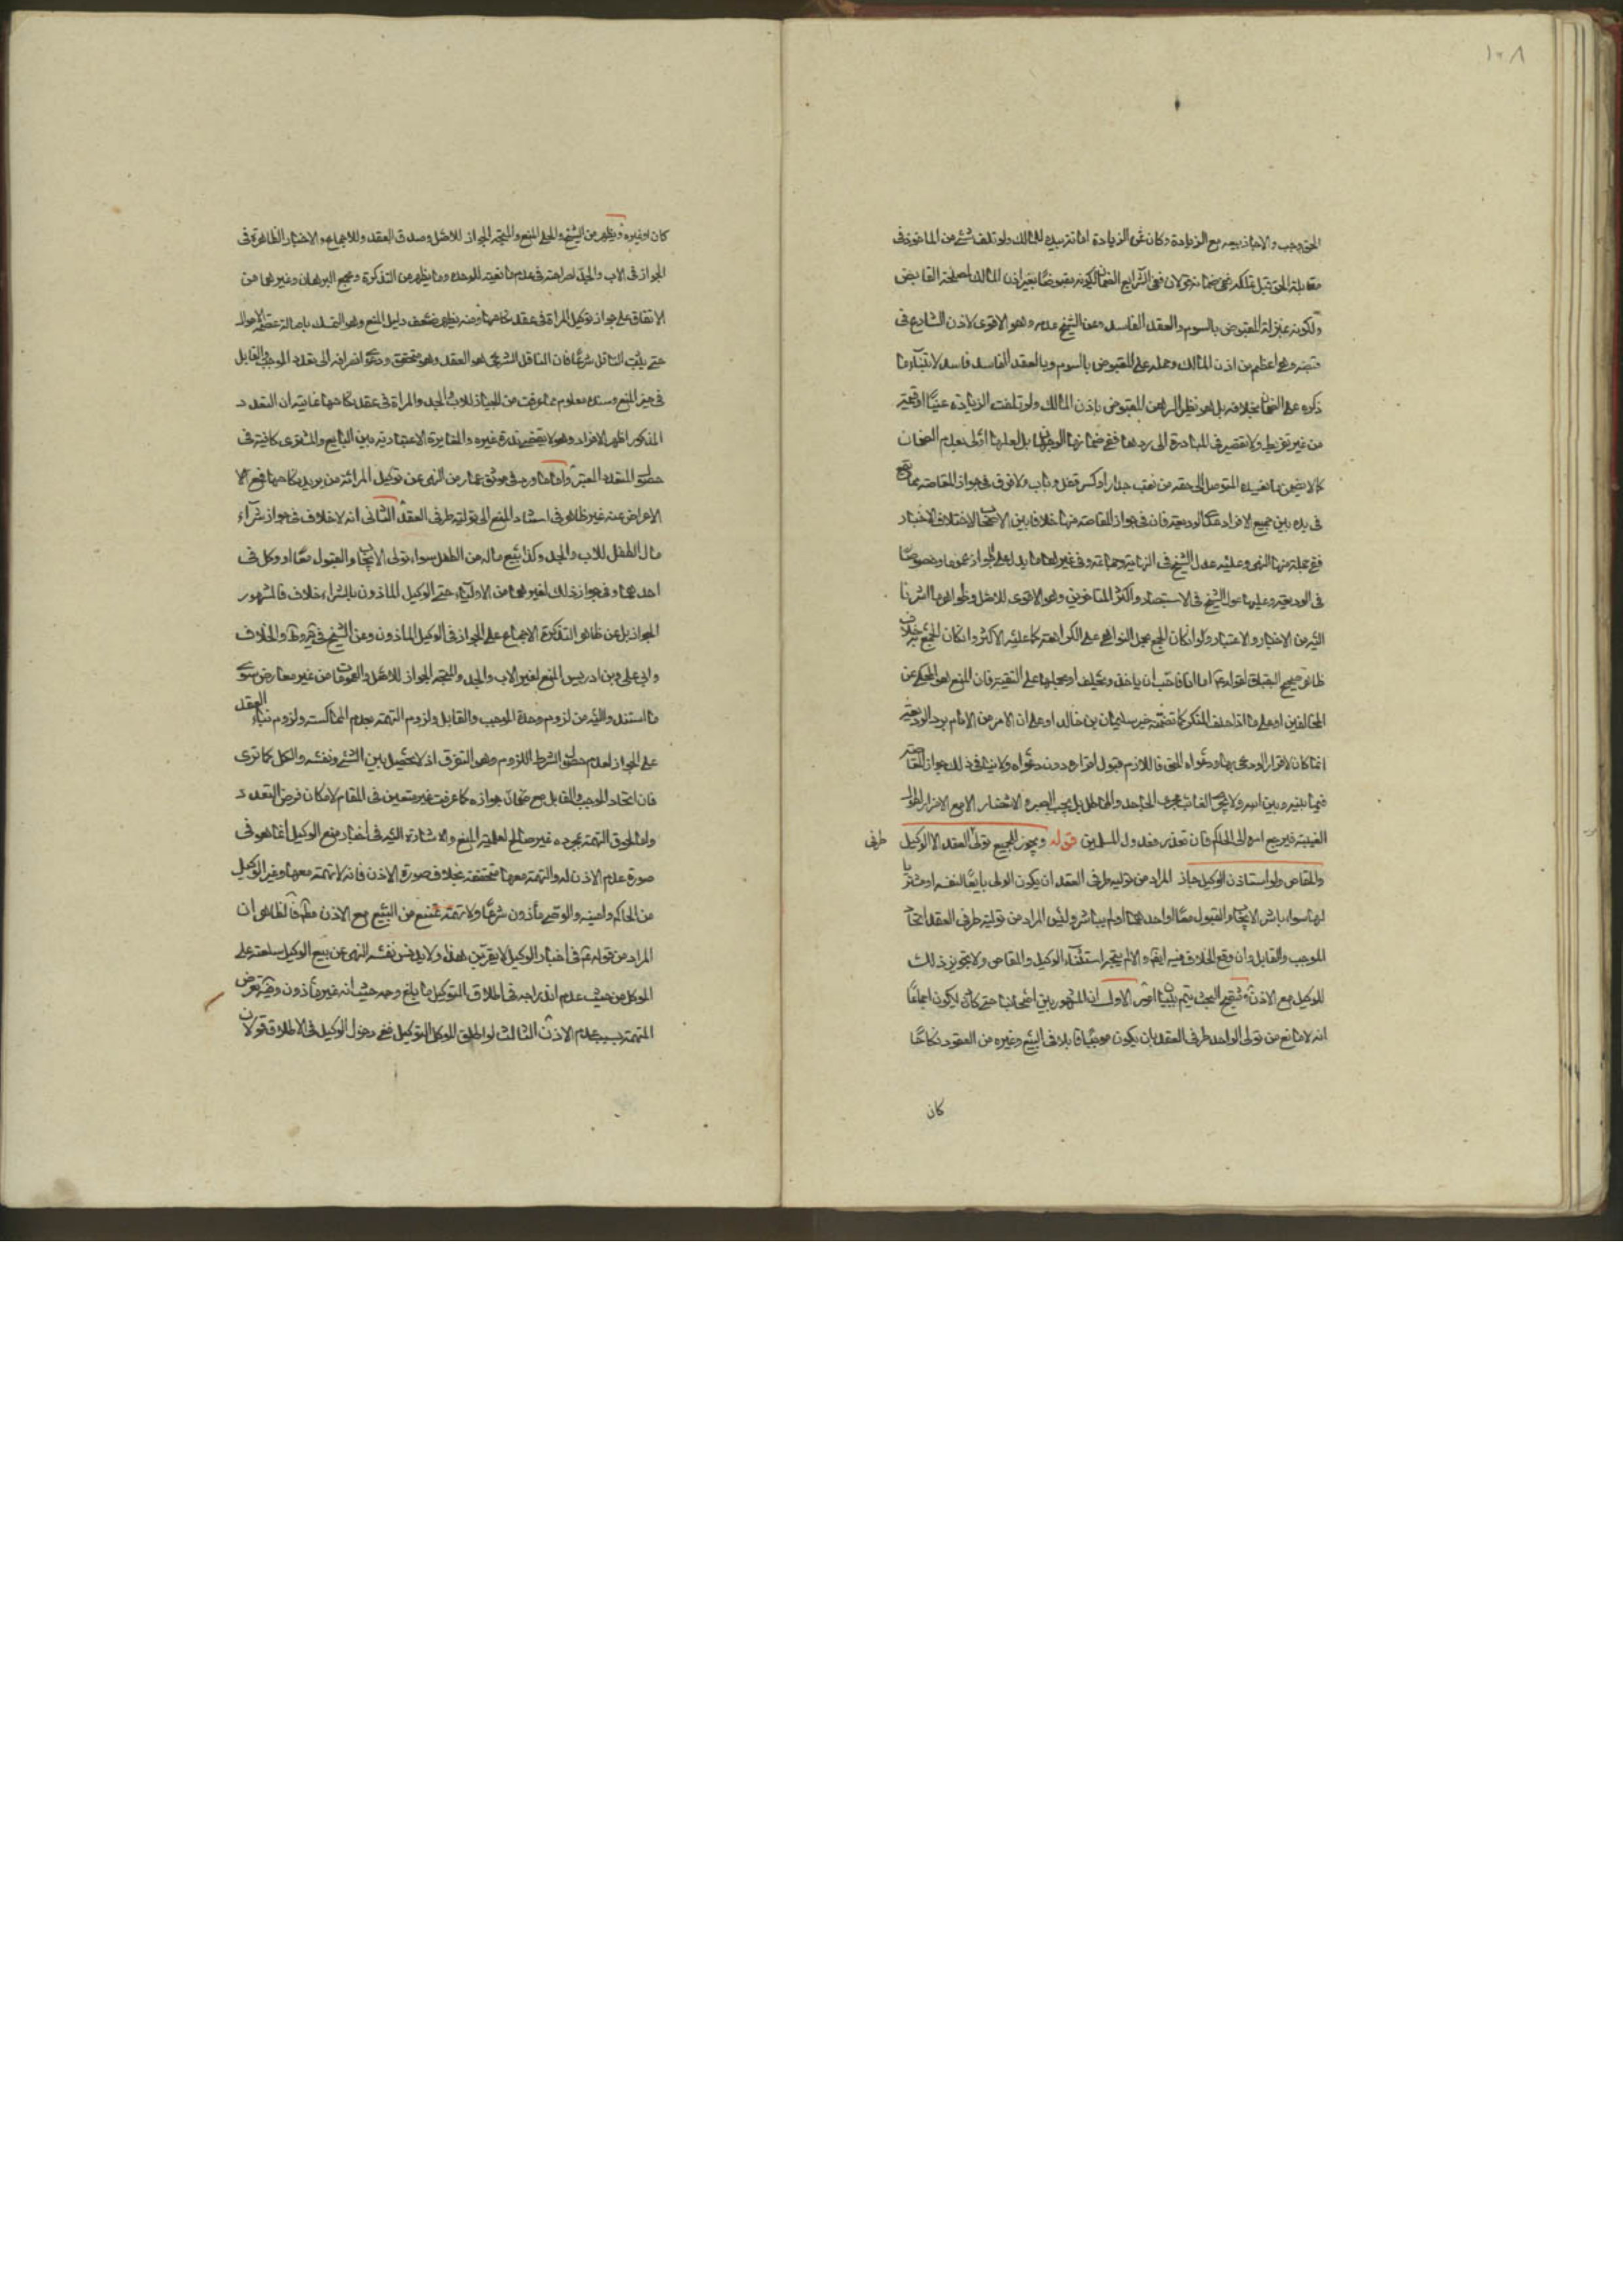 ١٠٨
الحق وجب والا جاز بيعه مع الزيادة وكان ثمن الزيادة امانة بيده للمالك ولو تلف شئ من الماخوذ في
مقابلة الحق قبل تملكه ففي ضمانه قولان ففي الشرايع الضمان لكونه مقبوضا بغير اذن المالك لمصلحة القابض
ولكونه بمنزلة المقبوض بالسوم والعقد الفاسد وعن الشيخ عدمه وهو الاقوى لاذن الشارع في
قبضه وهو اعظم من اذن المالك وحمله على المقبوض بالسوم وبالعقد الفاسد فاسد لابتناء ما
ذكره على الضمان بخلافه بل هو نظير الرهن المقبوض باذن المالك ولو تلفت الزيادة عينا او قيمة
من غير تفريط ولا تقصير في المبادرة الى ردها ففي ضمانها الوجهان بل لعلها اولى بعدم الضمان
كما لا يضمن ما يفسده المتوصل الى حقه من نقب جدار او كسر قفل وباب ولا فرق في جواز المقاصة بما يقع
في يده بين جميع الافراد عدا الوديعة فان في جواز المقاصة منها خلافا بين الاصحاب لاختلاف الاخبار
ففي جملة منها النهى وعليه عدل الشيخ في النهاية وجماعة وفي غيرها ما يدل على الجواز عموما وخصوصا
في الوديعة وعليها عول الشيخ في الاستبصار واكثر المتاخرين وهو الاقوى للاصل وظواهر ما اشرنا
اليه من الاخبار والاعتبار ولو كان الجمع بحمل النواهي على الكراهة كما عليه الاكثر وان كان الجمع بخلاف
ظاهر صحيح البقباق لقوله اما انا فاحب ان ياخذ ويحلف او بحملها على التقية فان المنع هو المحكي عن
المخالفين او على ما اذا حلف المنكر كما تضمنه خبر سليمان بن خالد او على ان الامر من الامام برد الوديعة
انما كان لاقرار الودعي بها ودعواه الحق فاللازم قبول اقراره دون دعواه ولا ينافي ذلك جواز المقاصة
فيما بينه وبين الله ولا يجرى الغائب مجرى الجاحد والمماطل بل يجب الصبر الى الاستحضار الا مع الاضرار لطول
الغيبة فيرجع امره الى الحاكم فان تعذر فعدول المسلمين قوله ويجوز للجميع تولى العقد الا الوكيل
طرفى
والمقاص ولو استاذن الوكيل جاز المراد من توليه طرفى العقد ان يكون الولى بايعا لنفسه او مشتريا
لها سواء باشر الايجاب والقبول معا او احدهما او لم يباشر وليس المراد من توليه طرفى العقد اتحاد
الموجب والقابل وان وقع الخلاف فيه ايضا والا لم يتجه استثناء الوكيل والمقاص ولا تجويز ذلك
للوكيل مع الاذن وتنقيح البحث يتم ببيان امور الاول ان المشهور بين اصحابنا حتى كاد ان يكون اجماعا
انه لا مانع من تولى الواحد طرفى العقد بان يكون موجبا قابلا في البيع وغيره من العقود نكاحا
كان
كان او غيره ويظهر من الشيخ والحلي المنع والمتجه الجواز للاصل وصدق العقد وللاجماع والاخبار الظاهرة في
الجواز في الاب والجد لصراحته في عدم مانعية الوحدة وما يظهر من التذكرة ومجمع البرهان وغيرهما من
الاتفاق على جواز توكيل المراة في عقد نكاحها ومنه يظهر ضعف دليل المنع وهو التمسك باصالة عصمة الاموال
حتى يثبت الناقل شرعا فان الناقل الشرعي هو العقد وهو متحقق ودعوى انصرافه الى تعدد الموجب والقابل
في حيز المنع وسنده معلوم مما عرفت من الجواز للاب والجد والمراة في عقد نكاحها غايته ان التعدد
المذكور اظهر الافراد وهو لا يقتضى ندرة غيره والمغايرة الاعتبارية بين البايع والمشترى كافية في
حصول التعدد المعتبر واما ما ورد في موثق عمار من النهى عن توكيل المرأة من يريد نكاحها فمع الا
الاعراض عنه غير ظاهر في استناد المنع الى تولية طرفى العقد الثاني انه لا خلاف في جواز شرآء
مال الطفل للاب والجد وكذا بيع ماله من الطفل سواء تولى الايجاب والقبول معا او وكل في
احدهما وفي جواز ذلك لغيرهما من الاولياء حتى الوكيل الماذون بالشراء خلاف فالمشهور
الجواز بل عن ظاهر التذكرة الاجماع على الجواز في الوكيل الماذون وعن الشيخ في المبسوط والخلاف
وابي على وبن ادريس المنع لغير الاب والجد والمتجه الجواز للاصل والعمومات من غير معارض سوى
ما استند اليه من لزوم وحدة الموجب والقابل ولزوم التهمة بعدم المماكسة ولزوم بناء العقد
على الجواز لعدم حصول الشرط اللزوم وهو التفرق اذ لا يحصل بين الشئ ونفسه والكل كما ترى
فان اتحاد الموجب والقابل مع جوازه كما عرفت غير متعين في المقام لامكان فرض التعدد
واما لحوق التهمة بمجرده غير صالح لعلية المنع والاشارة اليه في اخبار منع الوكيل انما هو في
صورة عدم الاذن له والتهمة معها متحققة بخلاف صورة الاذن فانه لا تهمة معها وغير الوكيل
من الحاكم وامينه والوصى مأذون شرعا ولا تهمة تمنع من البيع مع الاذن مطلقا فالظاهر ان
المراد من قوله في اخبار الوكيل لا يقربن هذا ولا يدنس نفسه النهى عن بيع الوكيل سلعته على
الموكل من حيث عدم اندراجه في اطلاق التوكيل ما بلغ وجه حيث انه غير مأذون وفيه تعرض
التهمة بسبب عدم الاذن الثالث لو اطلق الموكل التوكيل ففي دخول الوكيل في الاطلاق قولان